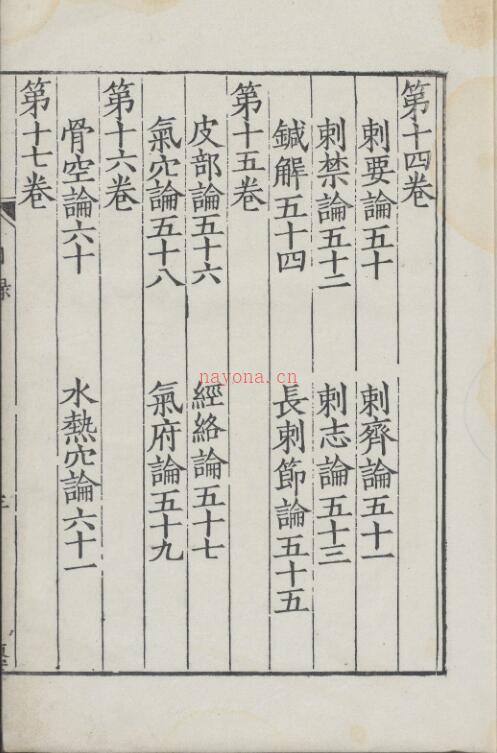 第十四卷
刺要論五十 刺齊論五十一
刺禁論五十二 刺志論五十三
鍼解五十四 長刺節論五十五
第十五卷
皮部論五十六 經絡論五十七
氣穴論五十八 氣府論五十九
第十六卷
骨空論六十 水熱穴論六十一
第十七卷
nayona.cn